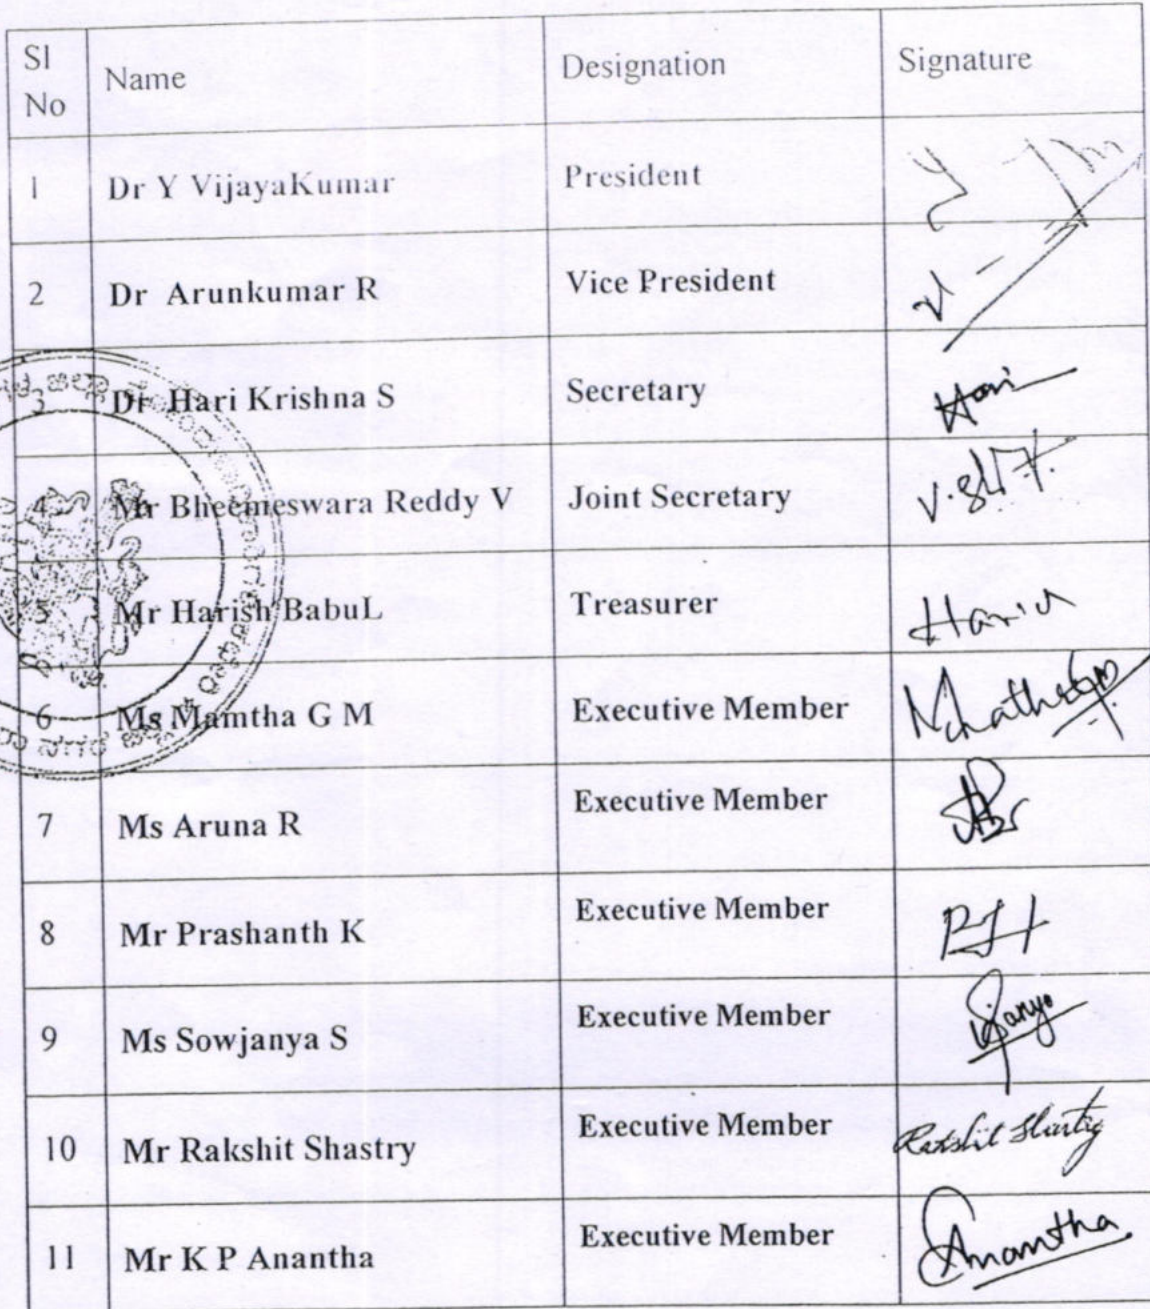 Sl No Name Designation Signature
1 Dr Y VijayaKumar President
2 Dr Arunkumar R Vice President
3 Dr Hari Krishna S Secretary Hari
4 Mr Bheemeswara Reddy V Joint Secretary
5 Mr Harish BabuL Treasurer
6 Ms Mamtha G M Executive Member
7 Ms Aruna R Executive Member
8 Mr Prashanth K Executive Member
9 Ms Sowjanya S Executive Member
10 Mr Rakshit Shastry Executive Member Rakshit Shastry
11 Mr K P Anantha Executive Member Anantha